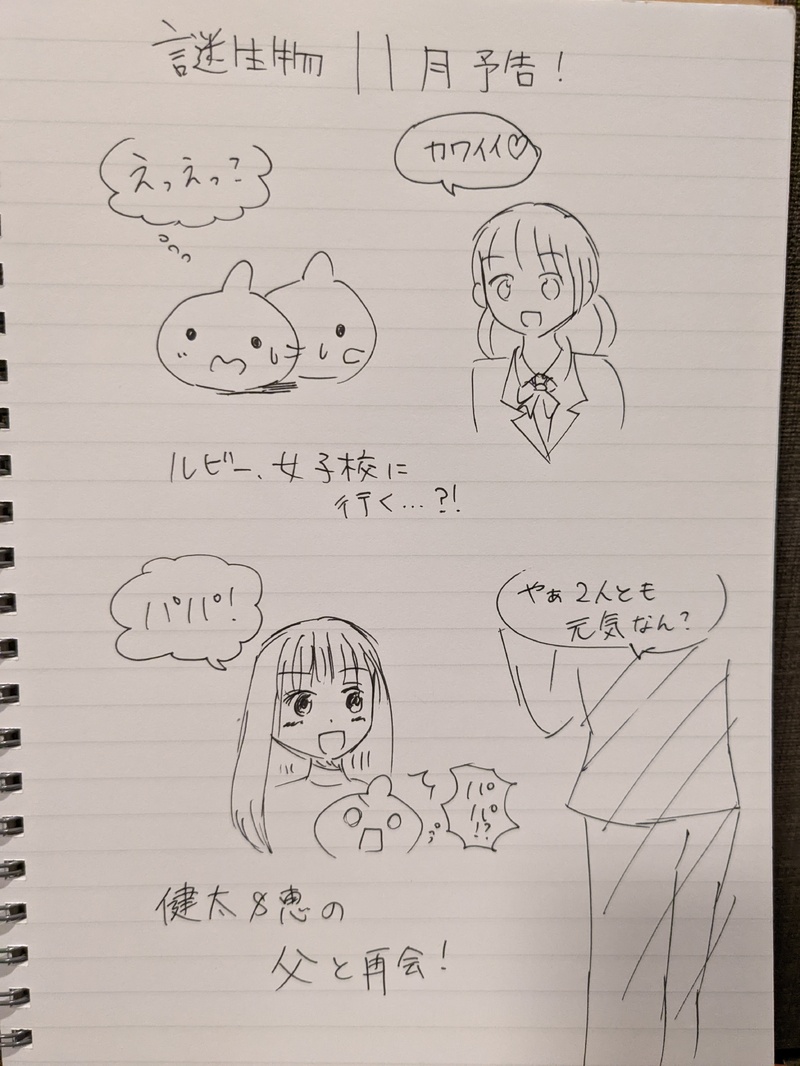 謎生物 11月予告!
えっえっ?
カワイイ♡
ルビー、女子校に
行く…?!
パパ!
やぁ2人とも
元気なん?
パ
パ
!?
健太&恵の
父と再会!